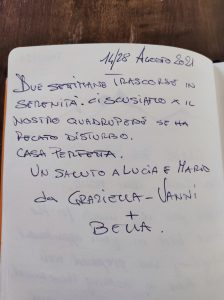 14/28 AGOSTO 2021
DUE SETTIMANE TRASCORSE IN
SERENITÀ. CI SCUSIAMO X IL
NOSTRO QUADRUPEDE SE HA
RECATO DISTURBO.
CASA PERFETTA.
UN SALUTO A LUCIA E MARIO
da GRAZIELLA - VANNI
+
BELLA.